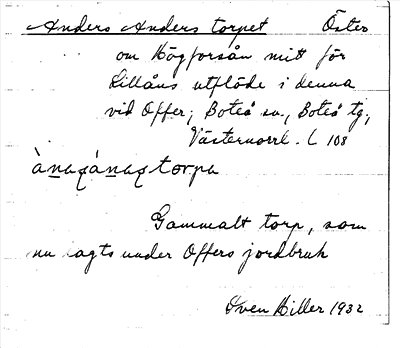 Anders Anders torpet Öster
om Högforsån mitt för
Lillåns utflöde i denna
vid Offer; Boteå sn., Boteå tg.,
Västernorrl. L 108
Gammalt torp, som
nu lagts under Offers jordbruk
Sven Hiller 1932